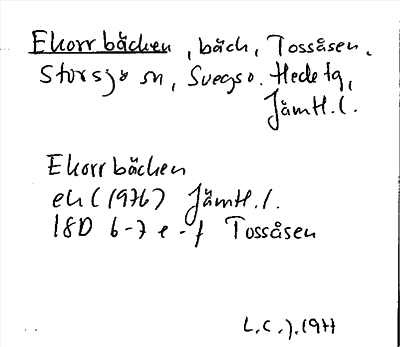 Ekorrbäcken, bäck, Tossåsen,
Storsjö sn, Svegs o. Hede tg,
Jämtl. l.
Ekorrbäcken
ek (1976) Jämtl. l.
18D 6-7 e-f Tossåsen
L.C.J. 1977